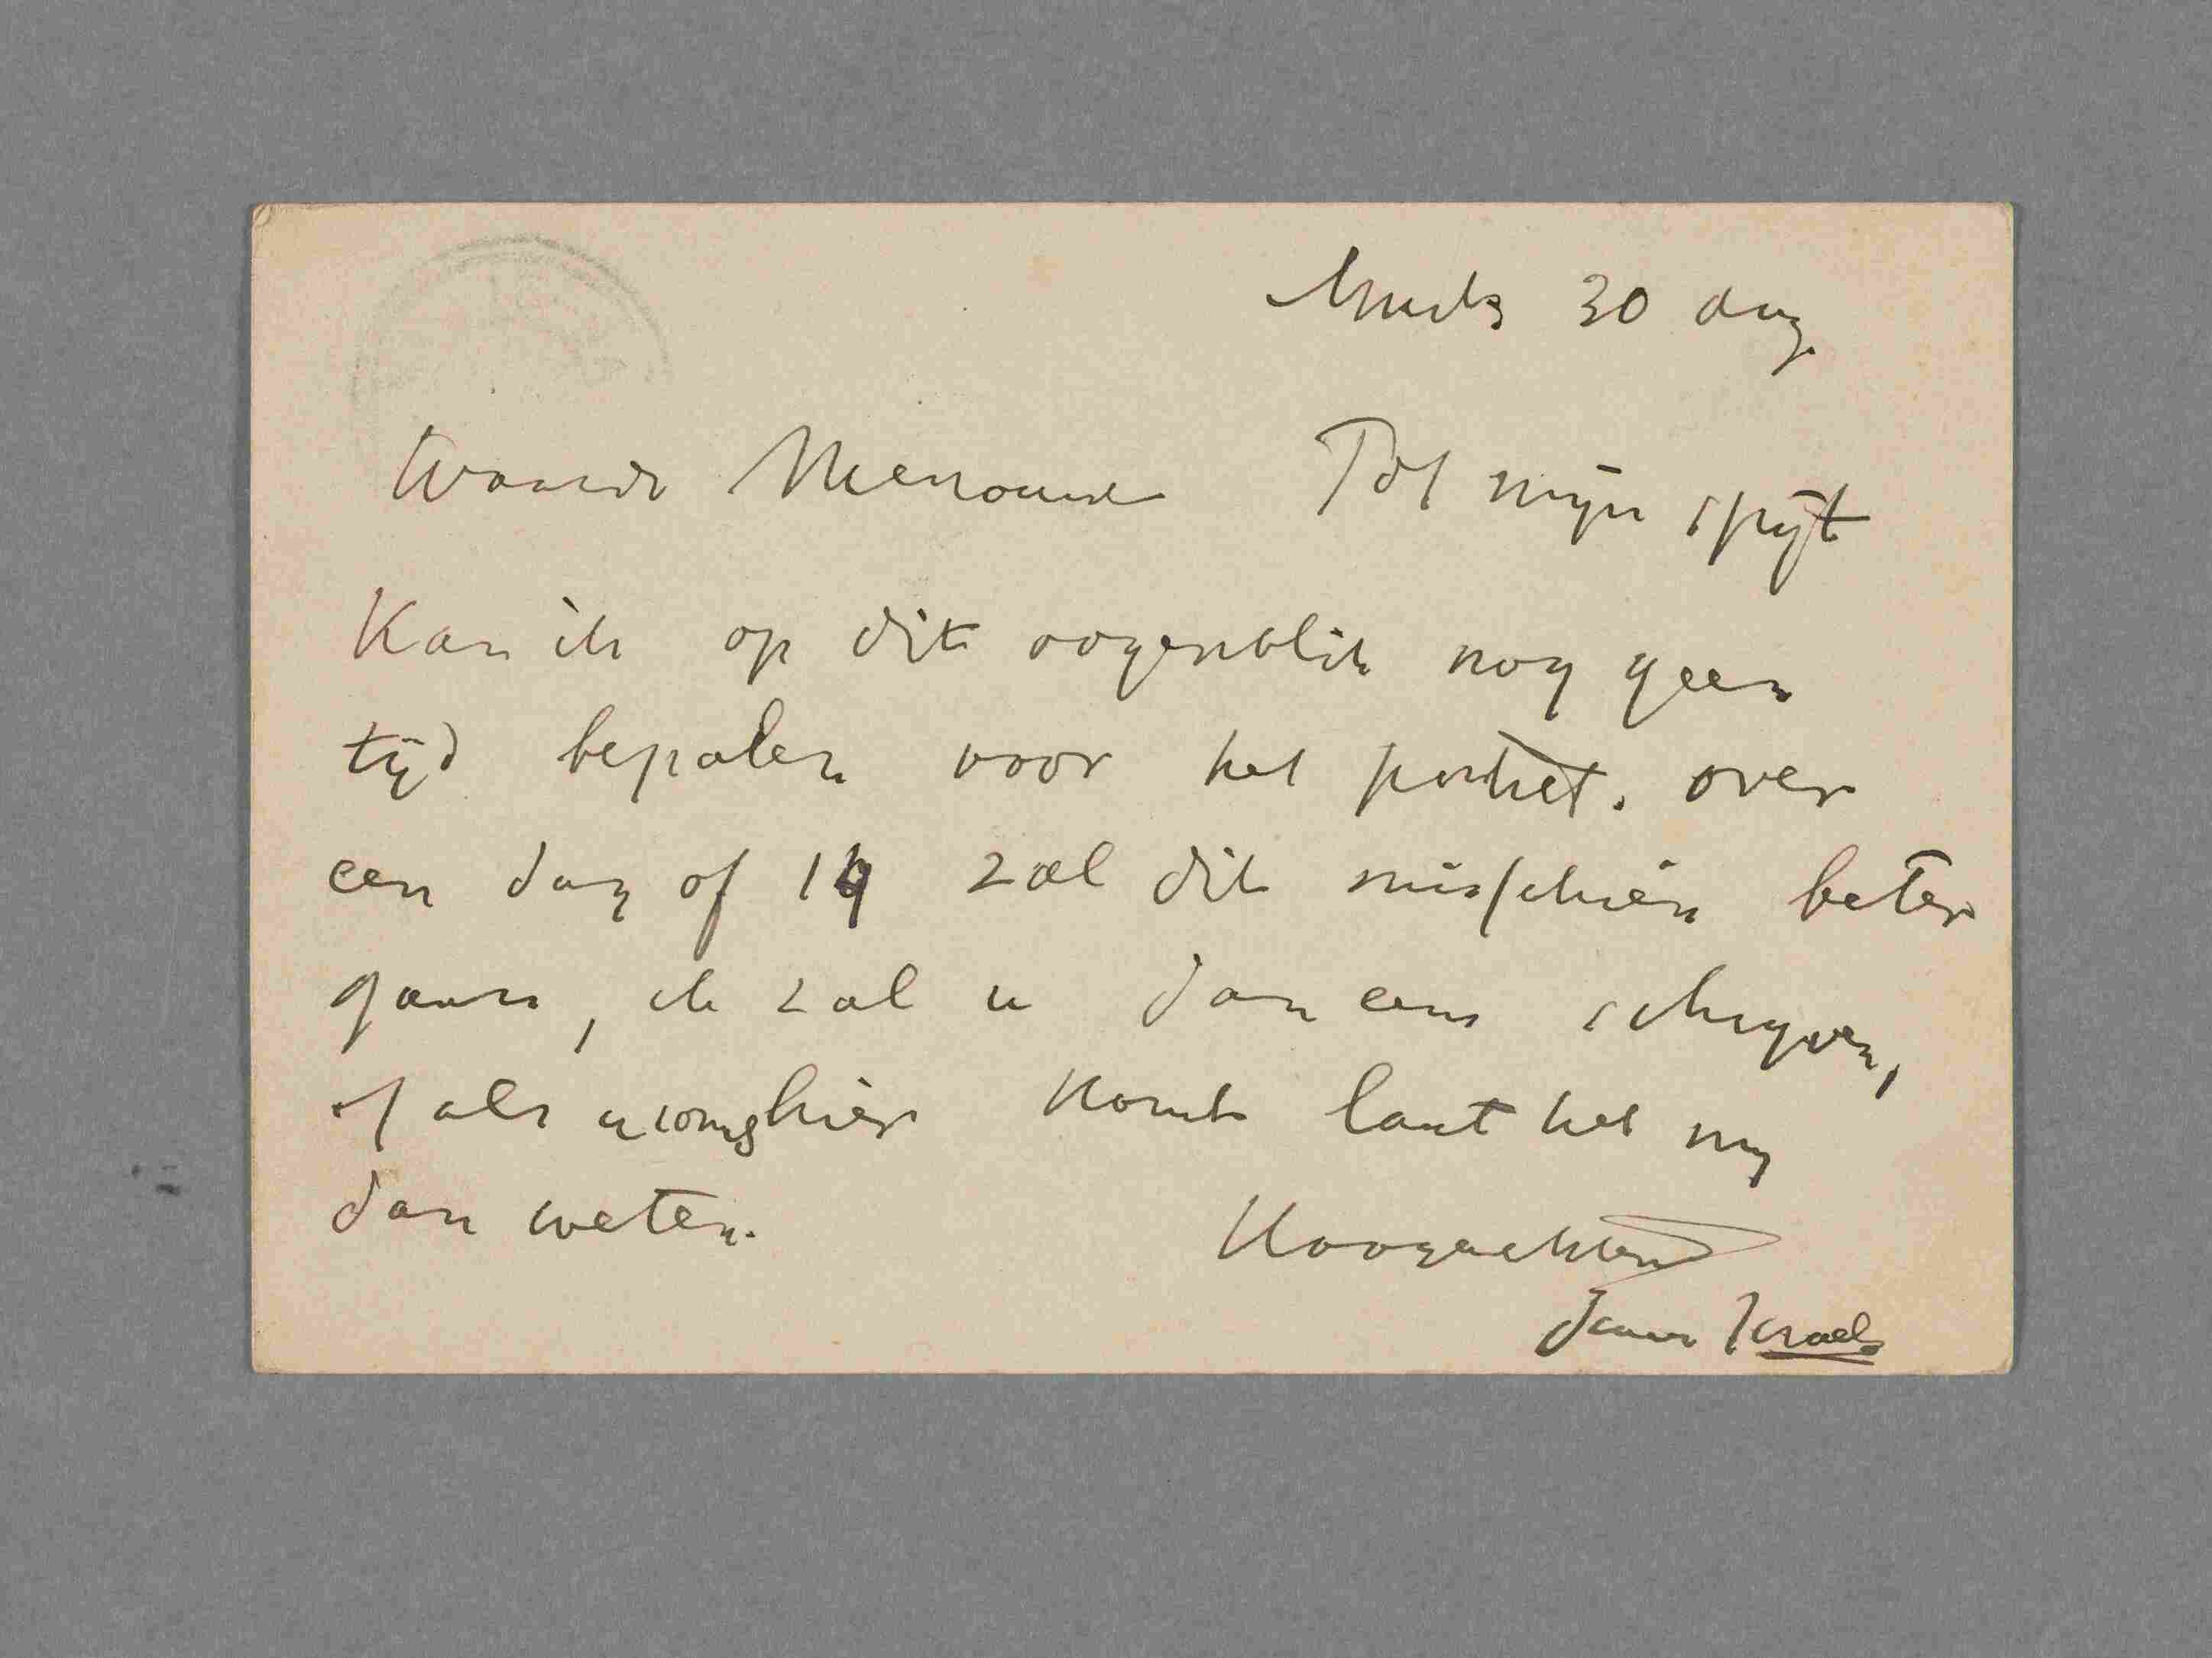 30 Aug
Waarde Mevrouw Tot mijn spijt
Kan ik op dit oogenblik nog geen
tijd bepalen voor het portret. over
een dag of 14 zal dit misschien beter
gaan, ik zal u dan eens schrijven,
of als u soms hier komt laat het mij
dan weten. Hoogachtend
Isaac Israels